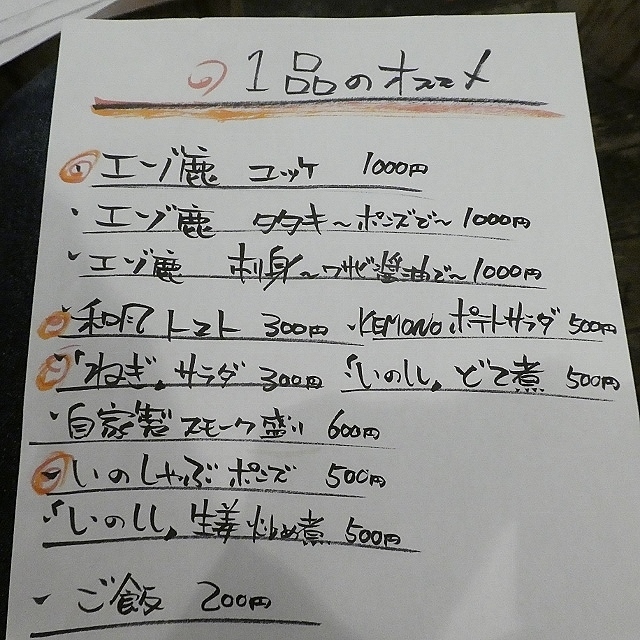 1品のオススメ
エゾ鹿 ユッケ 1000円
・エゾ鹿 タタキ〜ポンズで〜1000円
・エゾ鹿 刺身〜ワサビ醤油で〜1000円
・和風トマト 300円 ・KEMONOポテトサラダ 500円
・「ねぎ」サラダ 300円 「いのしし」どて煮 500円
・自家製スモーク盛り 600円
・いのしゃぶポンズ 500円
「いのしし」生姜炒め煮 500円
・ご飯 200円